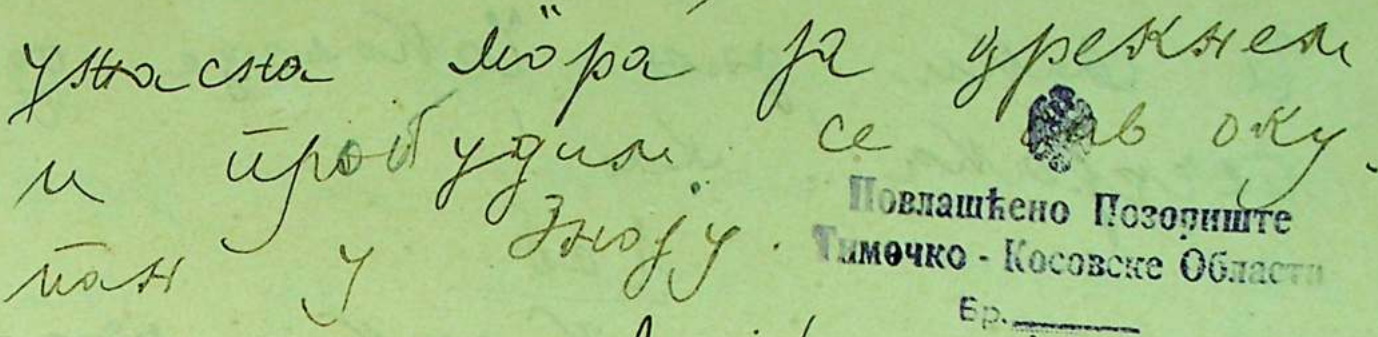 ужасна мора да дрекнем
и пробудим се сав оку-
пан у зноју.
Повлашћено Позориште
Тимочко - Косовске Области
Бр.